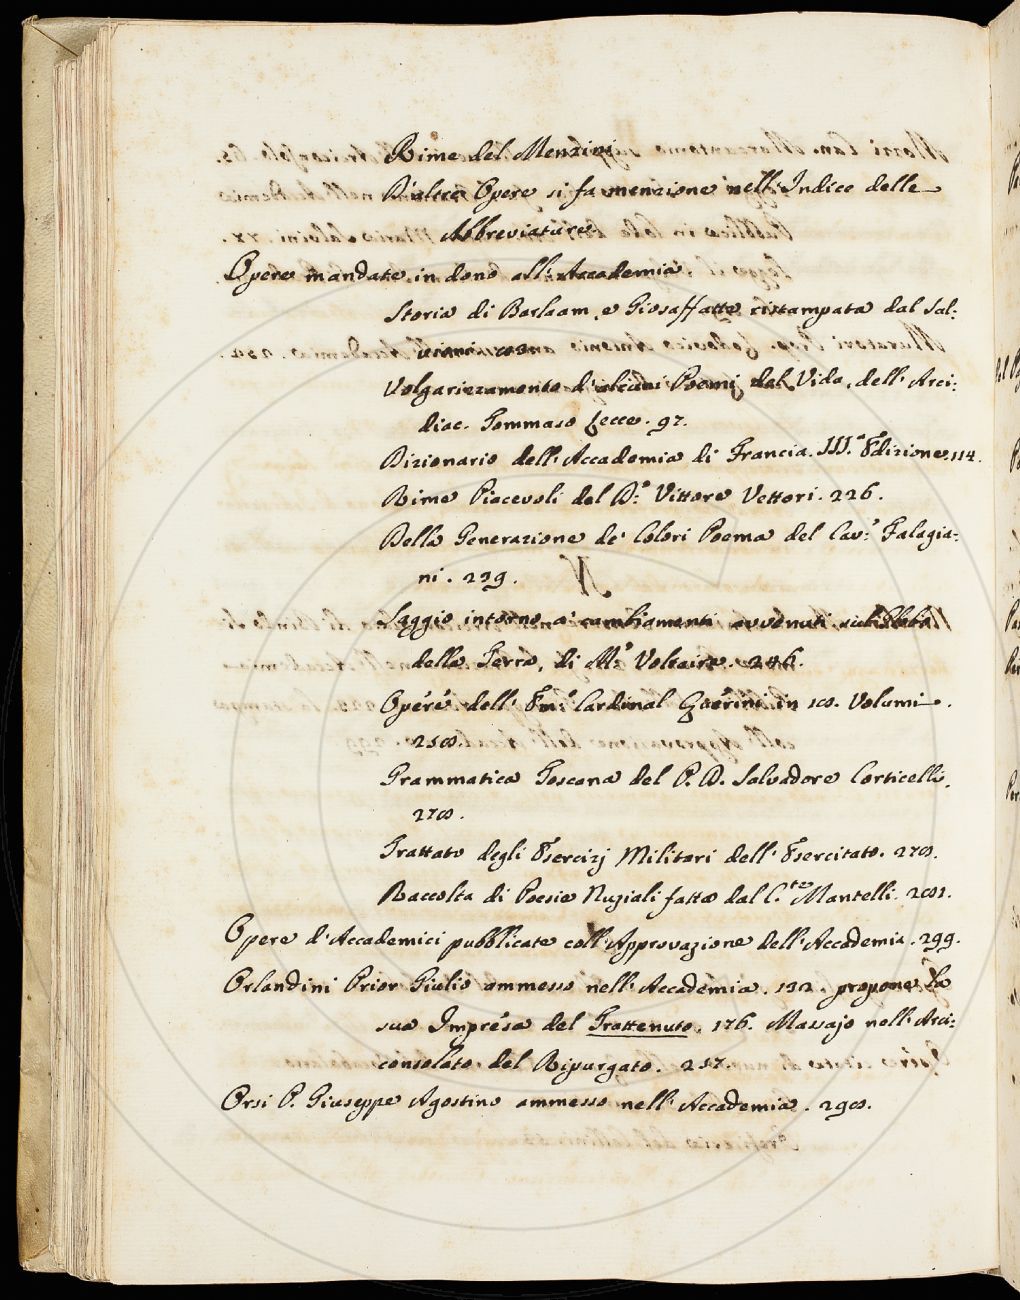 Rime del Menzini
D'altre Opere si fa menzione nell'Indice delle
Abbreviature
Opere mandate in dono all'Accademia.
Storia di Barlaam, e Giosaffatte ristampata dal Sal-
Volgarizzamento d'alcuni Poemi del Vida, dell'Arci-
diac. Tommaso Cecce. 97.
Dizionario dell'Accademia di Francia. III.ª Edizione. 114.
Rime Piacevoli del D.º Vittore Vettori. 226.
Della Generazione de' Colori Poema del Cav.º Talagia-
ni. 239.
Saggio intorno a' cambiamenti avvenuti
della Terra, di M.º Voltaire. 246.
Opere dell'Em.º Cardinal Querini in Volumi.
Grammatica Toscana del P. D. Salvadore Corticelli.
Trattato degli Esercizj Militari dell'Esercitato.
Raccolta di Poesie Nuziali fatta dal C.te Mantelli.
Opere d'Accademici pubblicate coll'Approvazione dell'Accademia. 299.
Orlandini Prior Giulio ammesso nell'Accademia. 132. propone la
sua Impresa del Trattenuto. 176. Massajo nell'Arci-
consolato del Ripurgato. 257.
Orsi P. Giuseppe Agostino ammesso nell'Accademia.